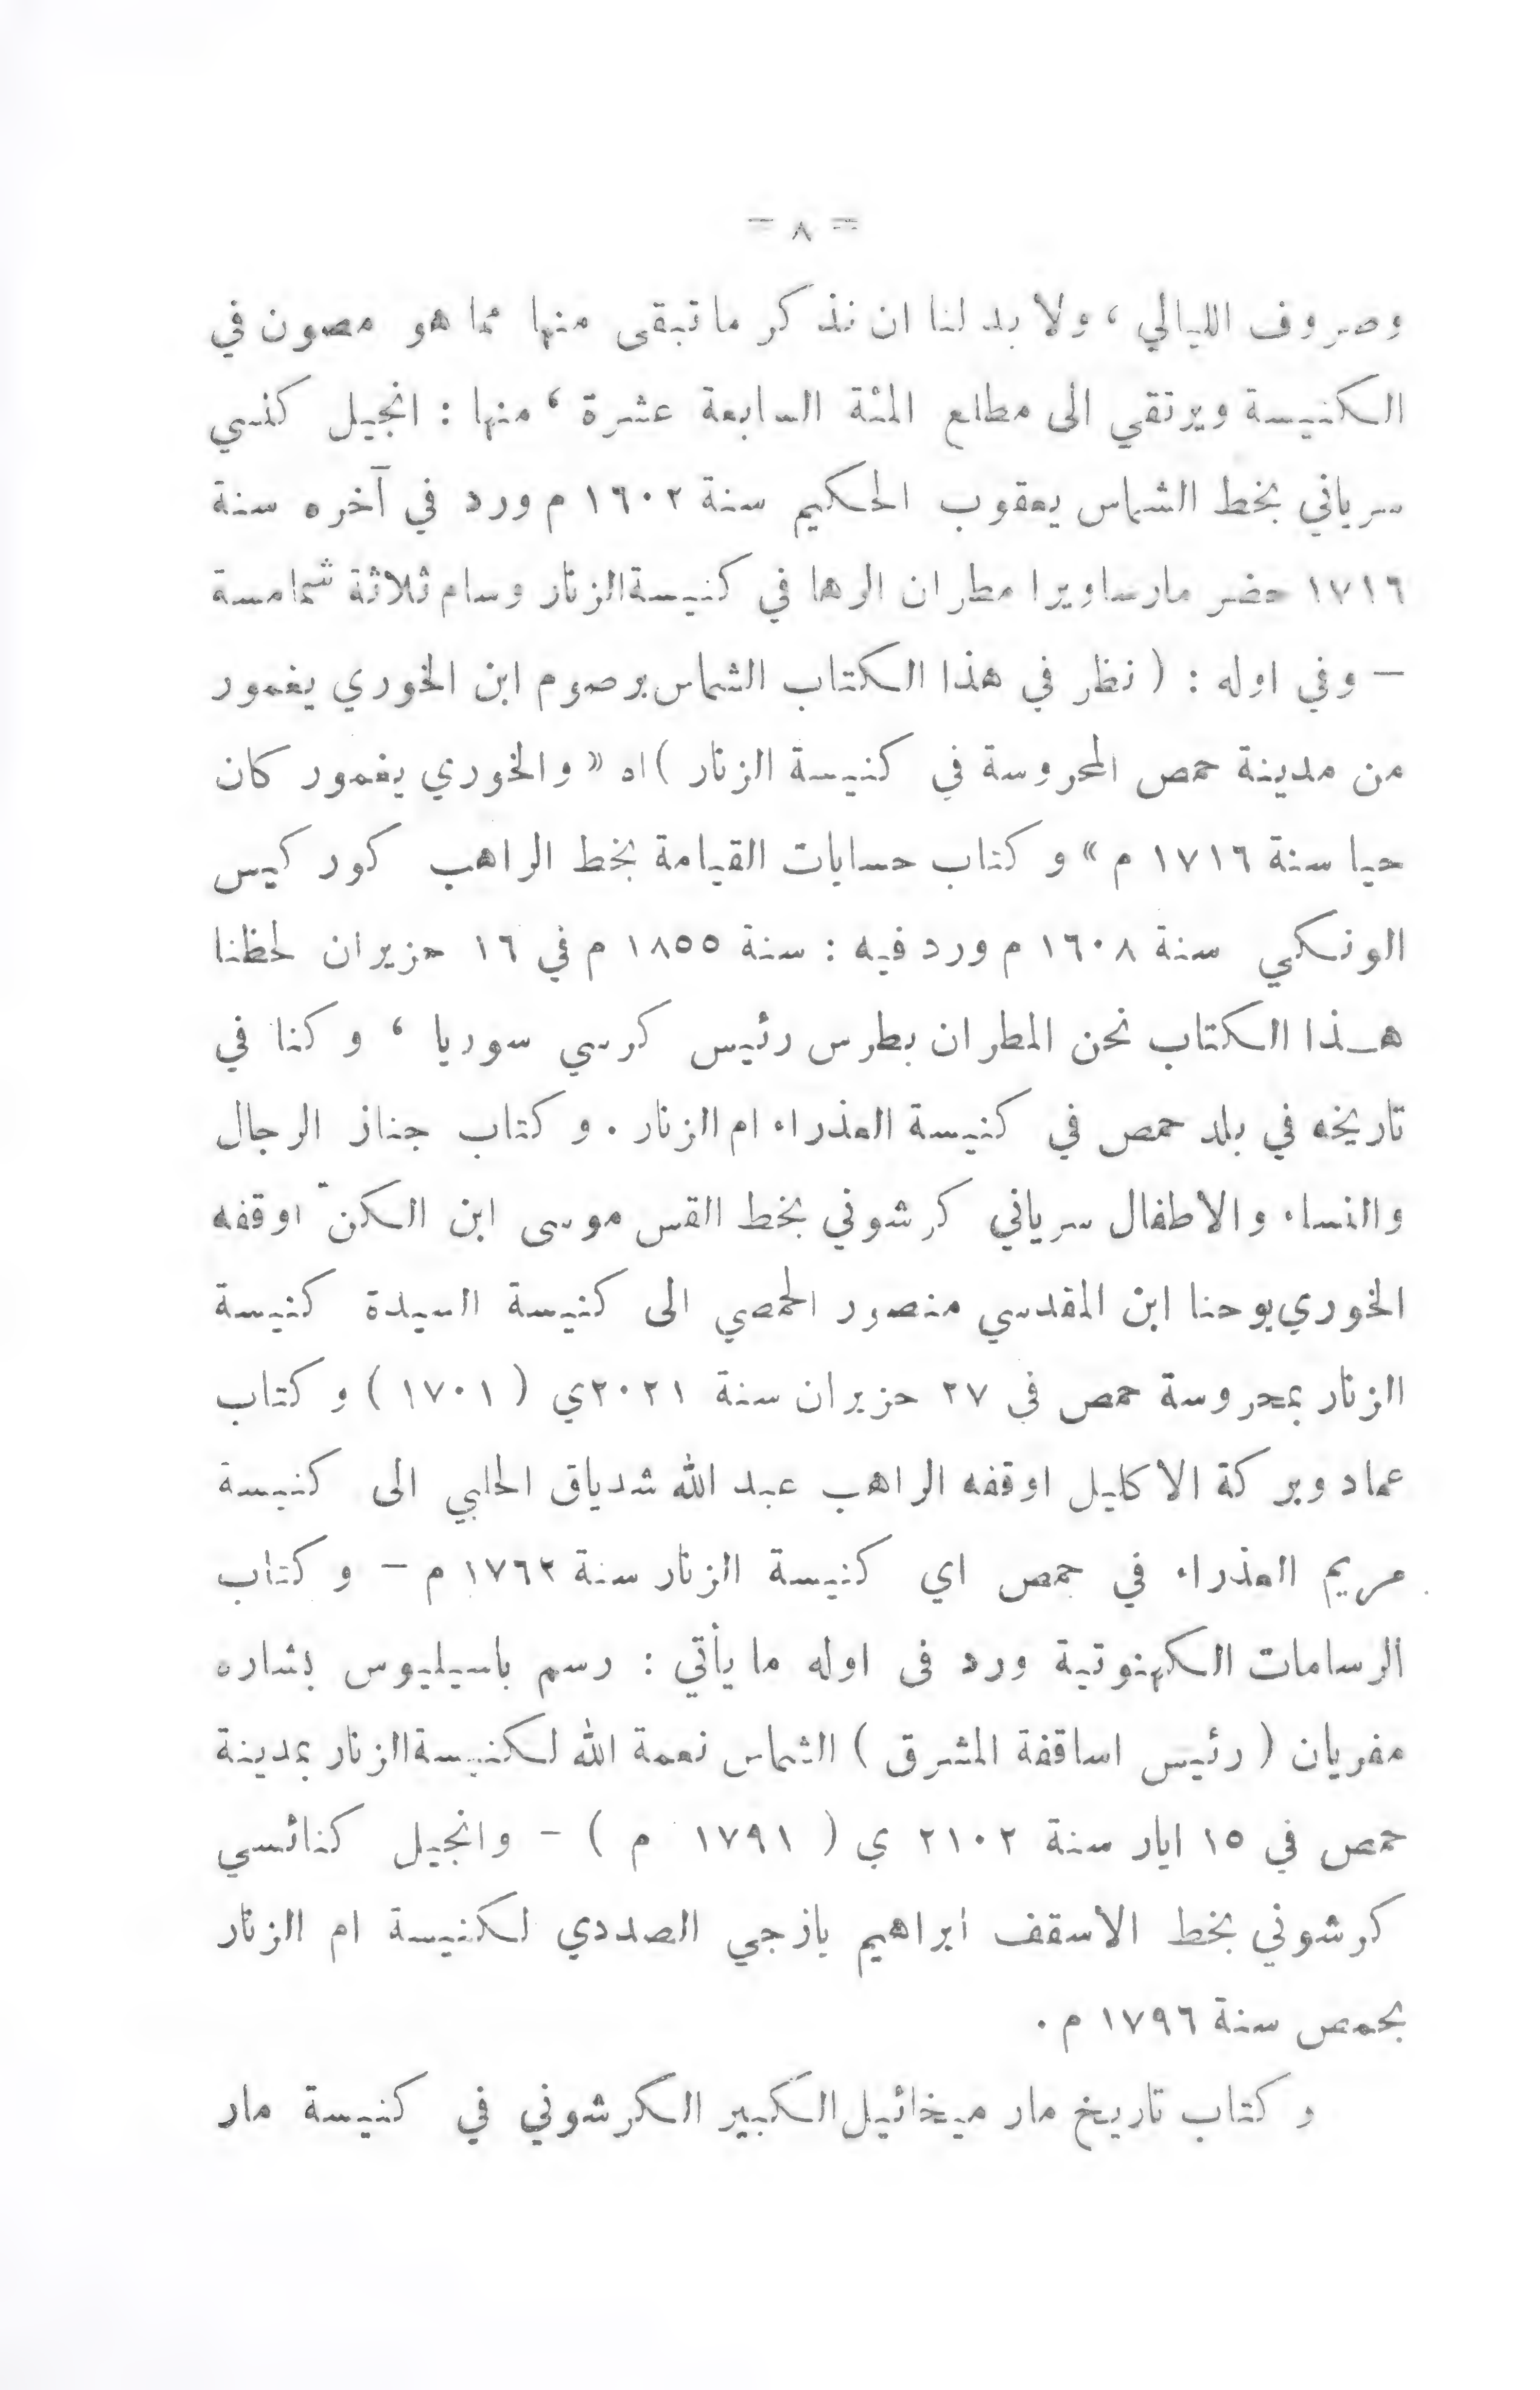 = ٨ =
وصروف الليالي ، ولا بد لنا ان نذكر ما تبقى منها مما هو مصون في
الكنيسة ويرتقي الى مطلع المئة السابعة عشرة ، منها : انجيل كنسي
سرياني بخط الشماس يعقوب الحكيم سنة ١٦٠٢ م ورد في آخره سنة
١٧١٦ حضر مار ساويرا مطران الرها في كنيسة الزنار وسام ثلاثة شمامسة
— وفي اوله : ( نظر في هذا الكتاب الشماس برصوم ابن الخوري يغمور
من مدينة حمص المحروسة في كنيسة الزنار ) اه « والخوري يغمور كان
حيا سنة ١٧١٦ م » وكتاب حسابات القيامة بخط الراهب كوركيس
الونكي سنة ١٦٠٨ م ورد فيه : سنة ١٨٥٥ م في ١٦ حزيران لحظنا
هـذا الكتاب نحن المطران بطرس رئيس كرسي سوريا ، وكنا في
تاريخه في بلد حمص في كنيسة العذراء ام الزنار . وكتاب جناز الرجال
والنساء والاطفال سرياني كرشوني بخط القس موسى ابن الكنّ اوقفه
الخوري يوحنا ابن المقدسي منصور الحمصي الى كنيسة السيدة كنيسة
الزنار بمحروسة حمص في ٢٧ حزيران سنة ٢٠٢١ي ( ١٧٠١ ) وكتاب
عماد وبركة الاكليل اوقفه الراهب عبد الله شدياق الحلبي الى كنيسة
مريم العذراء في حمص اي كنيسة الزنار سنة ١٧٦٢ م — وكتاب
الرسامات الكهنوتية ورد في اوله ما يأتي : رسم باسيليوس بشاره
مفريان ( رئيس اساقفة المشرق ) الشماس نعمة الله لكنيسة الزنار بمدينة
حمص في ١٥ ايار سنة ٢١٠٢ ي ( ١٧٩١ م ) - وانجيل كنائسي
كرشوني بخط الاسقف ابراهيم يازجي الصددي لكنيسة ام الزنار
بحمص سنة ١٧٩٦ م .
وكتاب تاريخ مار ميخائيل الكبير الكرشوني في كنيسة مار